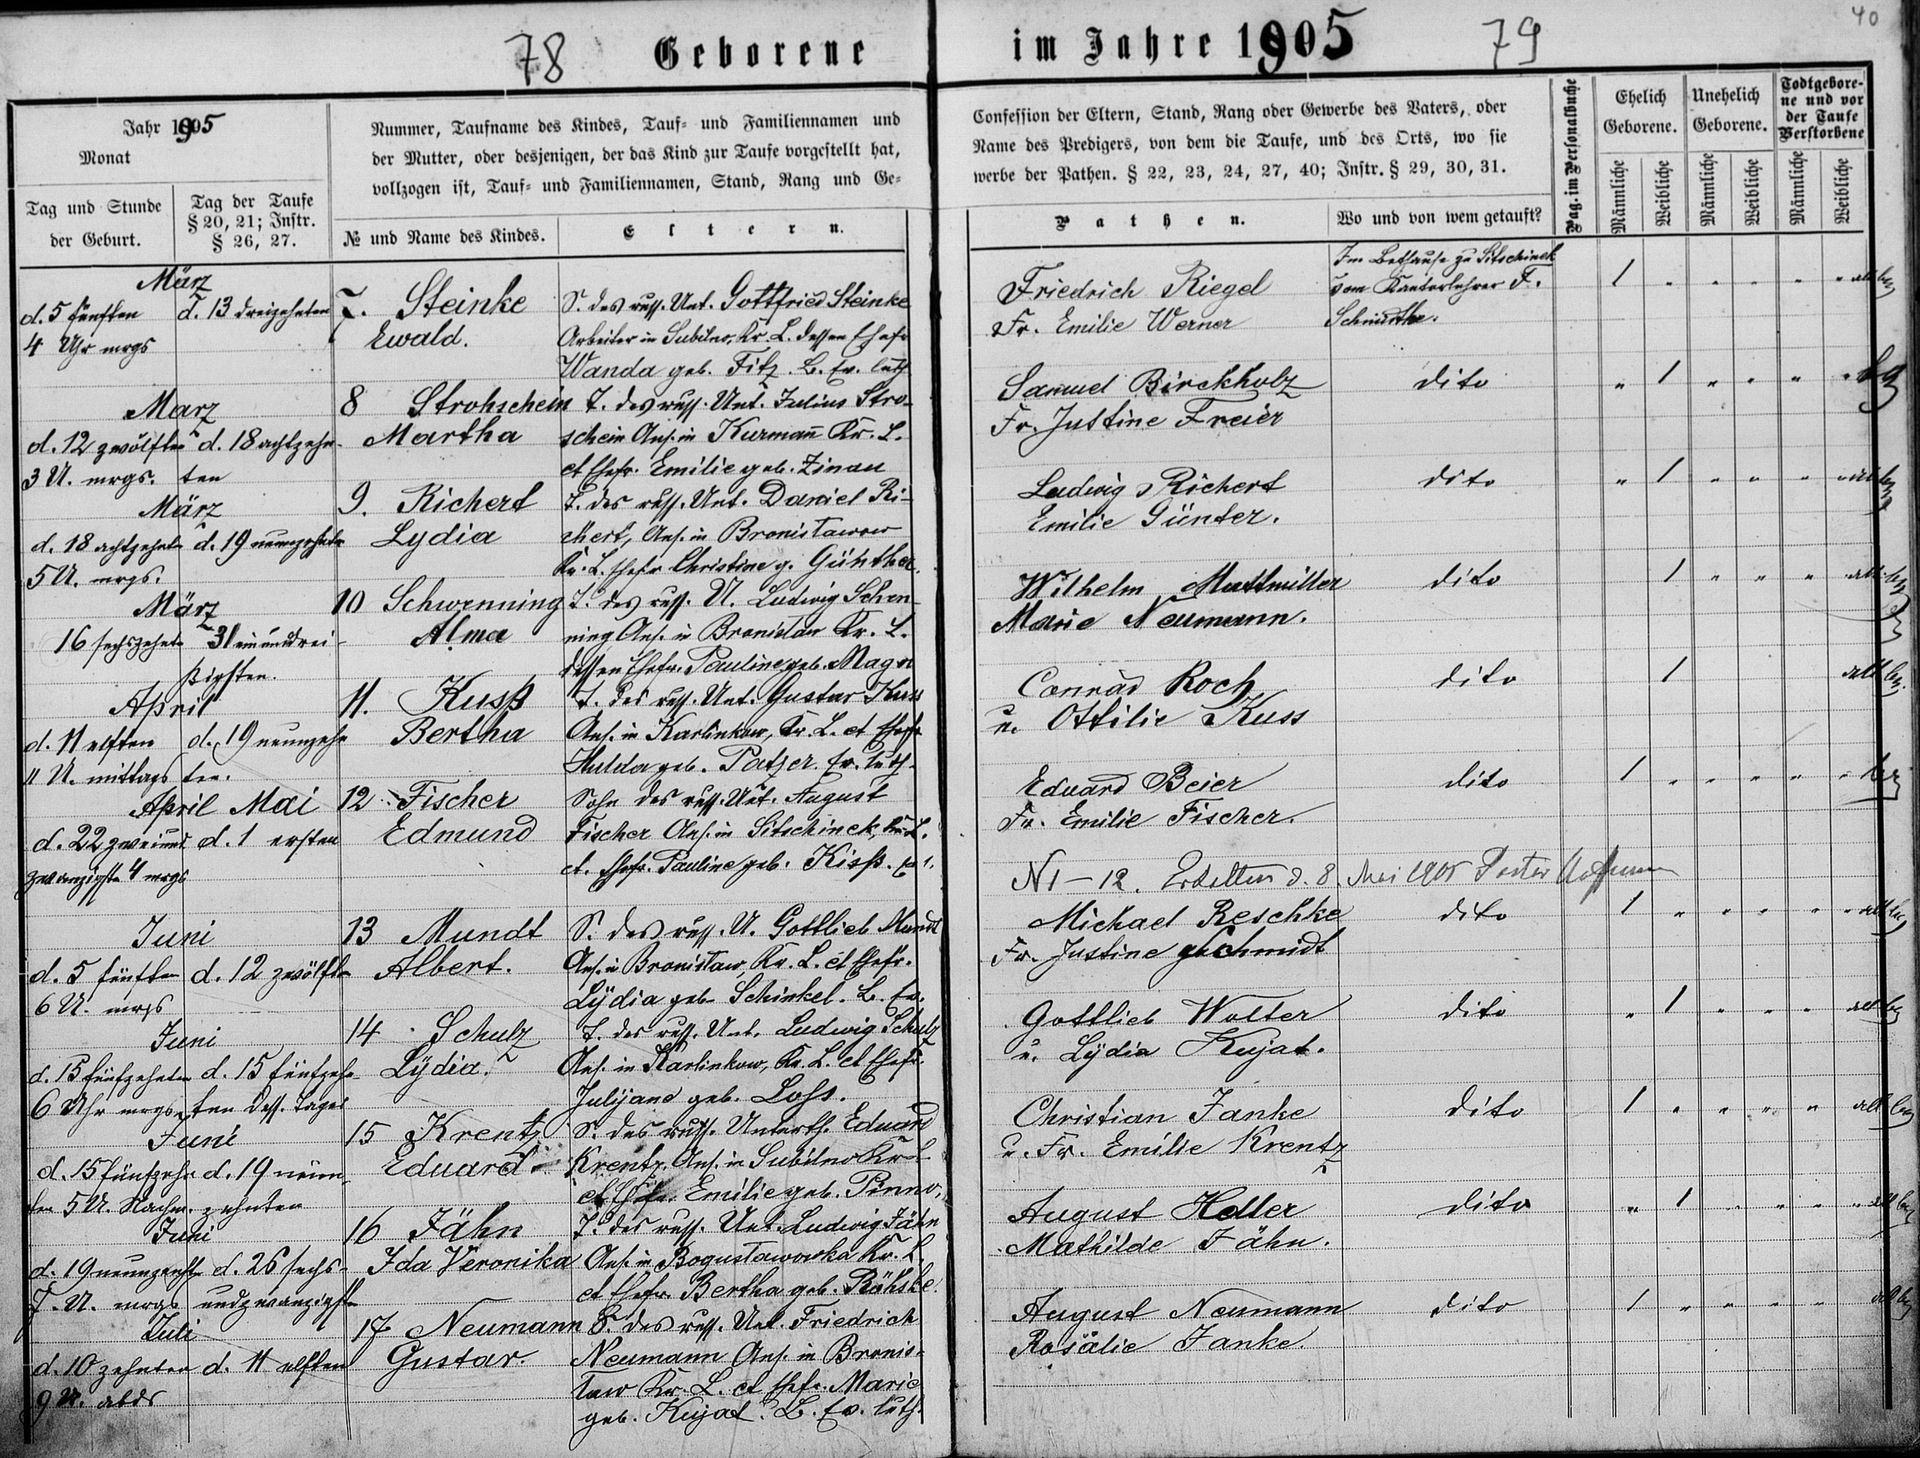 78 Geborene
im Jahre 1905 79
40
Jahr 1905
Monat
Tag und Stunde
der Geburt.
Tag der Taufe
§ 20, 21; Instr.
§ 26, 27.
Nummer, Taufname des Kindes, Tauf- und Familiennamen und
der Mutter, oder desjenigen, der das Kind zur Taufe vorgestellt hat,
vollzogen ist, Tauf- und Familiennamen, Stand, Rang und Ge-
№ und Name des Kindes.
Eltern.
Confession der Eltern, Stand, Rang oder Gewerbe des Vaters, oder
Name des Predigers, von dem die Taufe, und des Orts, wo sie
werbe der Pathen. § 22, 23, 24, 27, 40; Instr. § 29, 30, 31.
Pathen.
Wo und von wem getauft?
Pag. im Personalbuche
Ehelich
Geborene.
Unehelich
Geborene.
Todtgebore-
ne und vor
der Taufe
Verstorbene
Männliche
Weibliche
Männliche
Weibliche
Männliche
Weibliche
März
d. 5 fünften
4 Uhr mrgs
d. 13 dreizehnten
7. Steinke
Ewald.
S. des russ. Unt. Gottfried Steinke
Arbeiter in Subilno, Kr. L. dessen Ehefr
Wanda geb. Fitz. B. Ev. luth
Friedrich Riegel
Fr. Emilie Werner
Im Bethause zu Sitschinek
vom Kantorlehrer F.
1
März
d. 12 zwölften
3 U. mrgs.
d. 18 achtzehn-
ten
8 Strohschein
Martha
T. des russ. Unt. Julius Stro-
schein Ans. in Kurmañ Kr. L.
et Ehefr. Emilie geb. Zinau
Samuel Birckholz
Fr. Justine Freier
dito
1
März
d. 18 achtzehnte
5 U. mrgs.
d. 19 neunzehnte
9. Richert
Lydia
T. des russ. Unt. Daniel Ri-
chert, Ans. in Bronisławow
Kr. L. Ehefr Christine g. Günther.
Ludwig Richert
Emilie Günter.
dito
1
März
16 sechszehnte
31 einunddrei-
ßigsten.
10 Schwenning
Alma
T. des russ. U. Ludwig Schwen-
ning Ans. in Bronislaw Kr. L.
dessen Ehefr. Pauline geb. Magon
Wilhelm Mattmüller
Marie Neumann.
dito
1
April
d. 11 elften
11 U. mittags
d. 19 neunzehn
ten.
11. Kuss
Bertha
T. des russ. Unt. Gustav Kuss
Ans. in Karlinkow, Kr. L. et Ehefr
Hulda geb. Patzer. Ev. luth.
Conrad Roch
u. Ottilie Kuss
dito
1
April Mai
d. 22 zweiund
zwanzigste 4 mrgs
d. 1 ersten
12 Fischer
Edmund
Sohn des russ. Unt. August
Fischer Ans. in Sitschinek, Kr. L.
et. Ehefr. Pauline geb. Kiss.
Eduard Beier
Fr. Emilie Fischer.
dito
1
N 1-12. Erhalten d. 8. Mai 1905 Pastor
Juni
d. 5 fünften
6 U. mrgs
d. 12 zwölften
13 Mundt
Albert.
S. des russ. U. Gottlieb Mundt
Ans. in Bronislaw, Kr. L. et Ehefr.
Lÿdia geb Schinkel. B. Ev.
Michael Reschke
Fr. Justine Schmidt
dito
1
Juni
d. 15 fünfzehnten
6 Uhr mrgs
d. 15 fünfzehn-
ten dess. Tages
14 Schulz
Lÿdia.
T. des russ. Unt. Ludwig Schulz
Ans. in Karlinkow, Kr. L. et Ehefr.
Julijane geb. Loss.
Gottlieb Wolter
u. Lÿdia Kujat.
dito
1
Juni
d. 15 fünfzehn-
ten 5 U. Nachm.
d. 19 neun-
zehnten
15 Krentz
Eduard
S. des russ. Unterth. Eduard
Krentz. Ans. in Subilno Kr L
et Ehefr. Emilie geb. Pinno,
Christian Janke
u. Fr. Emilie Krentz
dito
1
Juni
d. 19 neunzenhte
7. U. mrgs
d. 26 sechs-
undzwanzigste
16 Jähn
Ida Veronika
T. des russ. Unt. Ludwig Jähn
Ans. in Bogusławowka Kr. L.
et Ehefr. Bertha geb.
August Heller
Mathilde Jähn.
dito
1
Juli
d. 10 zehnten
9 U. abds
d. 11 elften
17 Neumann
Gustav.
S. des russ. Unt. Friedrich
Neumann Ans. in Bronis-
law Kr. L. et Ehefr. Marie
geb. Kujat. B. Ev. luth.
August Neumann
Rosälie Janke.
dito
1